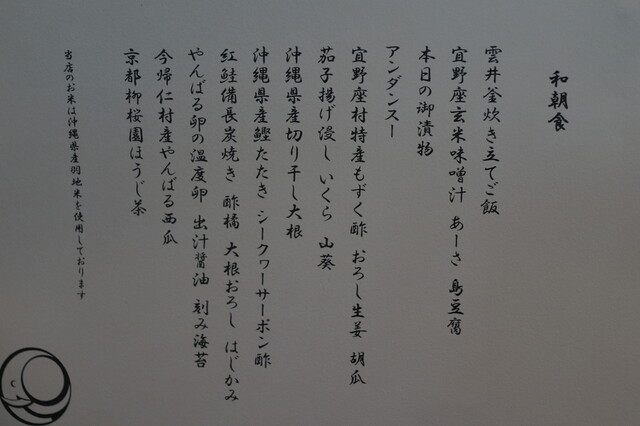 和朝食
雲井釜炊き立てご飯
宜野座玄米味噌汁 あーさ 島豆腐
本日の御漬物
アンダンスー
宜野座村特産もずく酢 おろし生姜 胡瓜
茄子揚げ浸し いくら 山葵
沖縄県産切り干し大根
沖縄県産鰹たたき シークワーサーポン酢
紅鮭備長炭焼き 酢橘 大根おろし はじかみ
やんばる卵の温度卵 出汁醤油 刻み海苔
今帰仁村産やんばる西瓜
京都柳桜園ほうじ茶
当店のお米は沖縄県産羽地米を使用しております